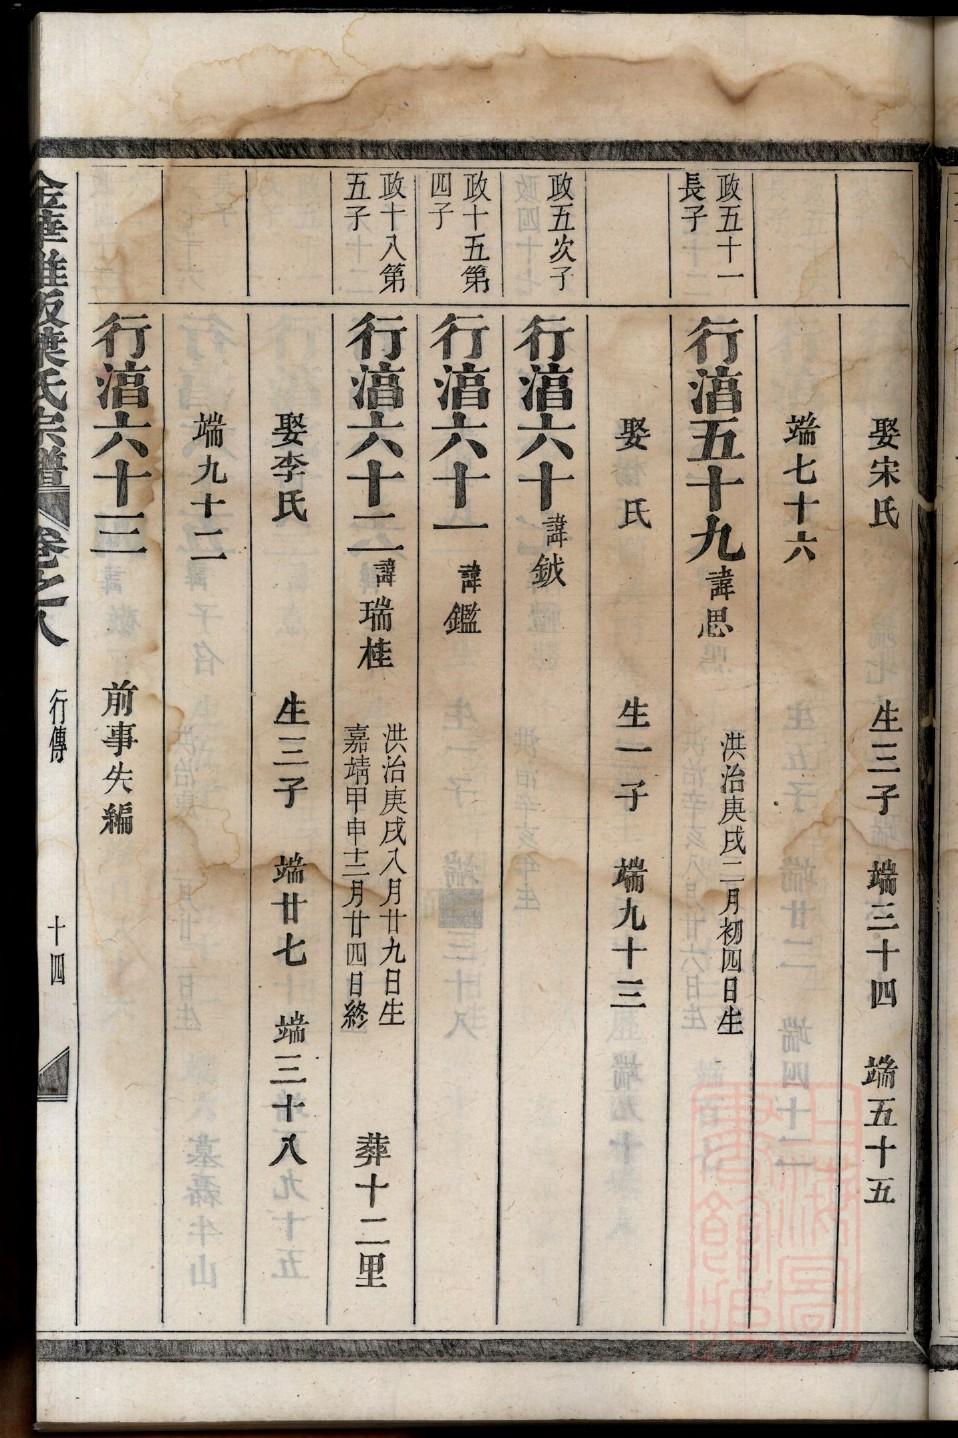 娶宋氏 生三子 端三十四 端五十五
端七十六
政五十一
長子
行湻五十九 諱思 洪治庚戌二月初四日生
娶 氏 生一子 端九十三
政五次子
行湻六十 諱鉞
政十五第
四子
行湻六十一 諱鑑
政十八第
五子
行湻六十二 諱瑞桂
洪治庚戌八月廿九日生
嘉靖甲申十二月廿四日終
葬十二里
娶李氏 生三子 端廿七 端三十八
端九十二
行湻六十三 前事失編
金華 葉氏宗譜 卷之八 行傳 十四